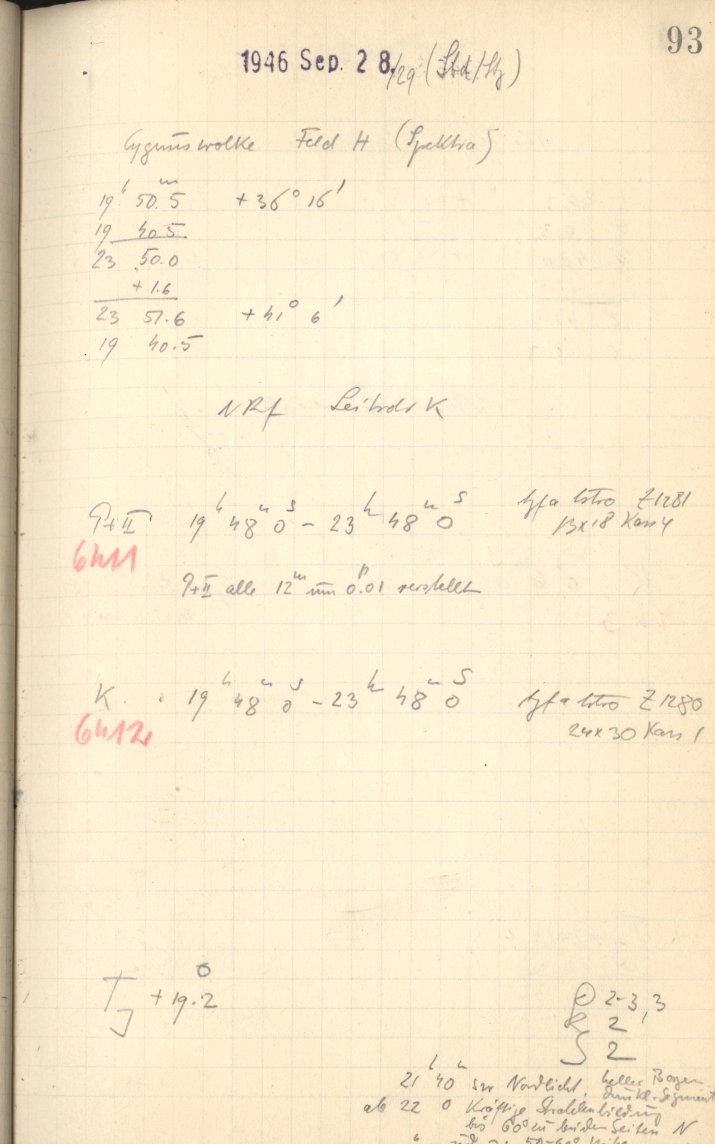 93
1946 Sep. 28./29 (Std/Stz)
Cygnuswolke Feld H (Spektra)
19ʰ 50.5ᵐ +36° 16'
19 40.5
23 50.0
+1.6
23 51.6 +41° 6'
19 40.5
NRf K
P+II 19ʰ 48ᵐ 0ˢ – 23ʰ 48ᵐ 0ˢ Agfa Astro Z1281
13x18 Kass 4
6411
P+II alle 12ᵐ um 0.01 verstellt
K 19ʰ 48ᵐ 0ˢ – 23ʰ 48ᵐ 0ˢ Agfa Astro Z1280
24x30 Kass 1
6412
T_J +19.2°
2-3, 3
R 2
S 2
21ʰ 40ᵐ Nordlicht, heller Bogen
dunkl. Segment
ab 22 0 Kräftige Strahlenbildung
bis 60° zu beiden Seiten N